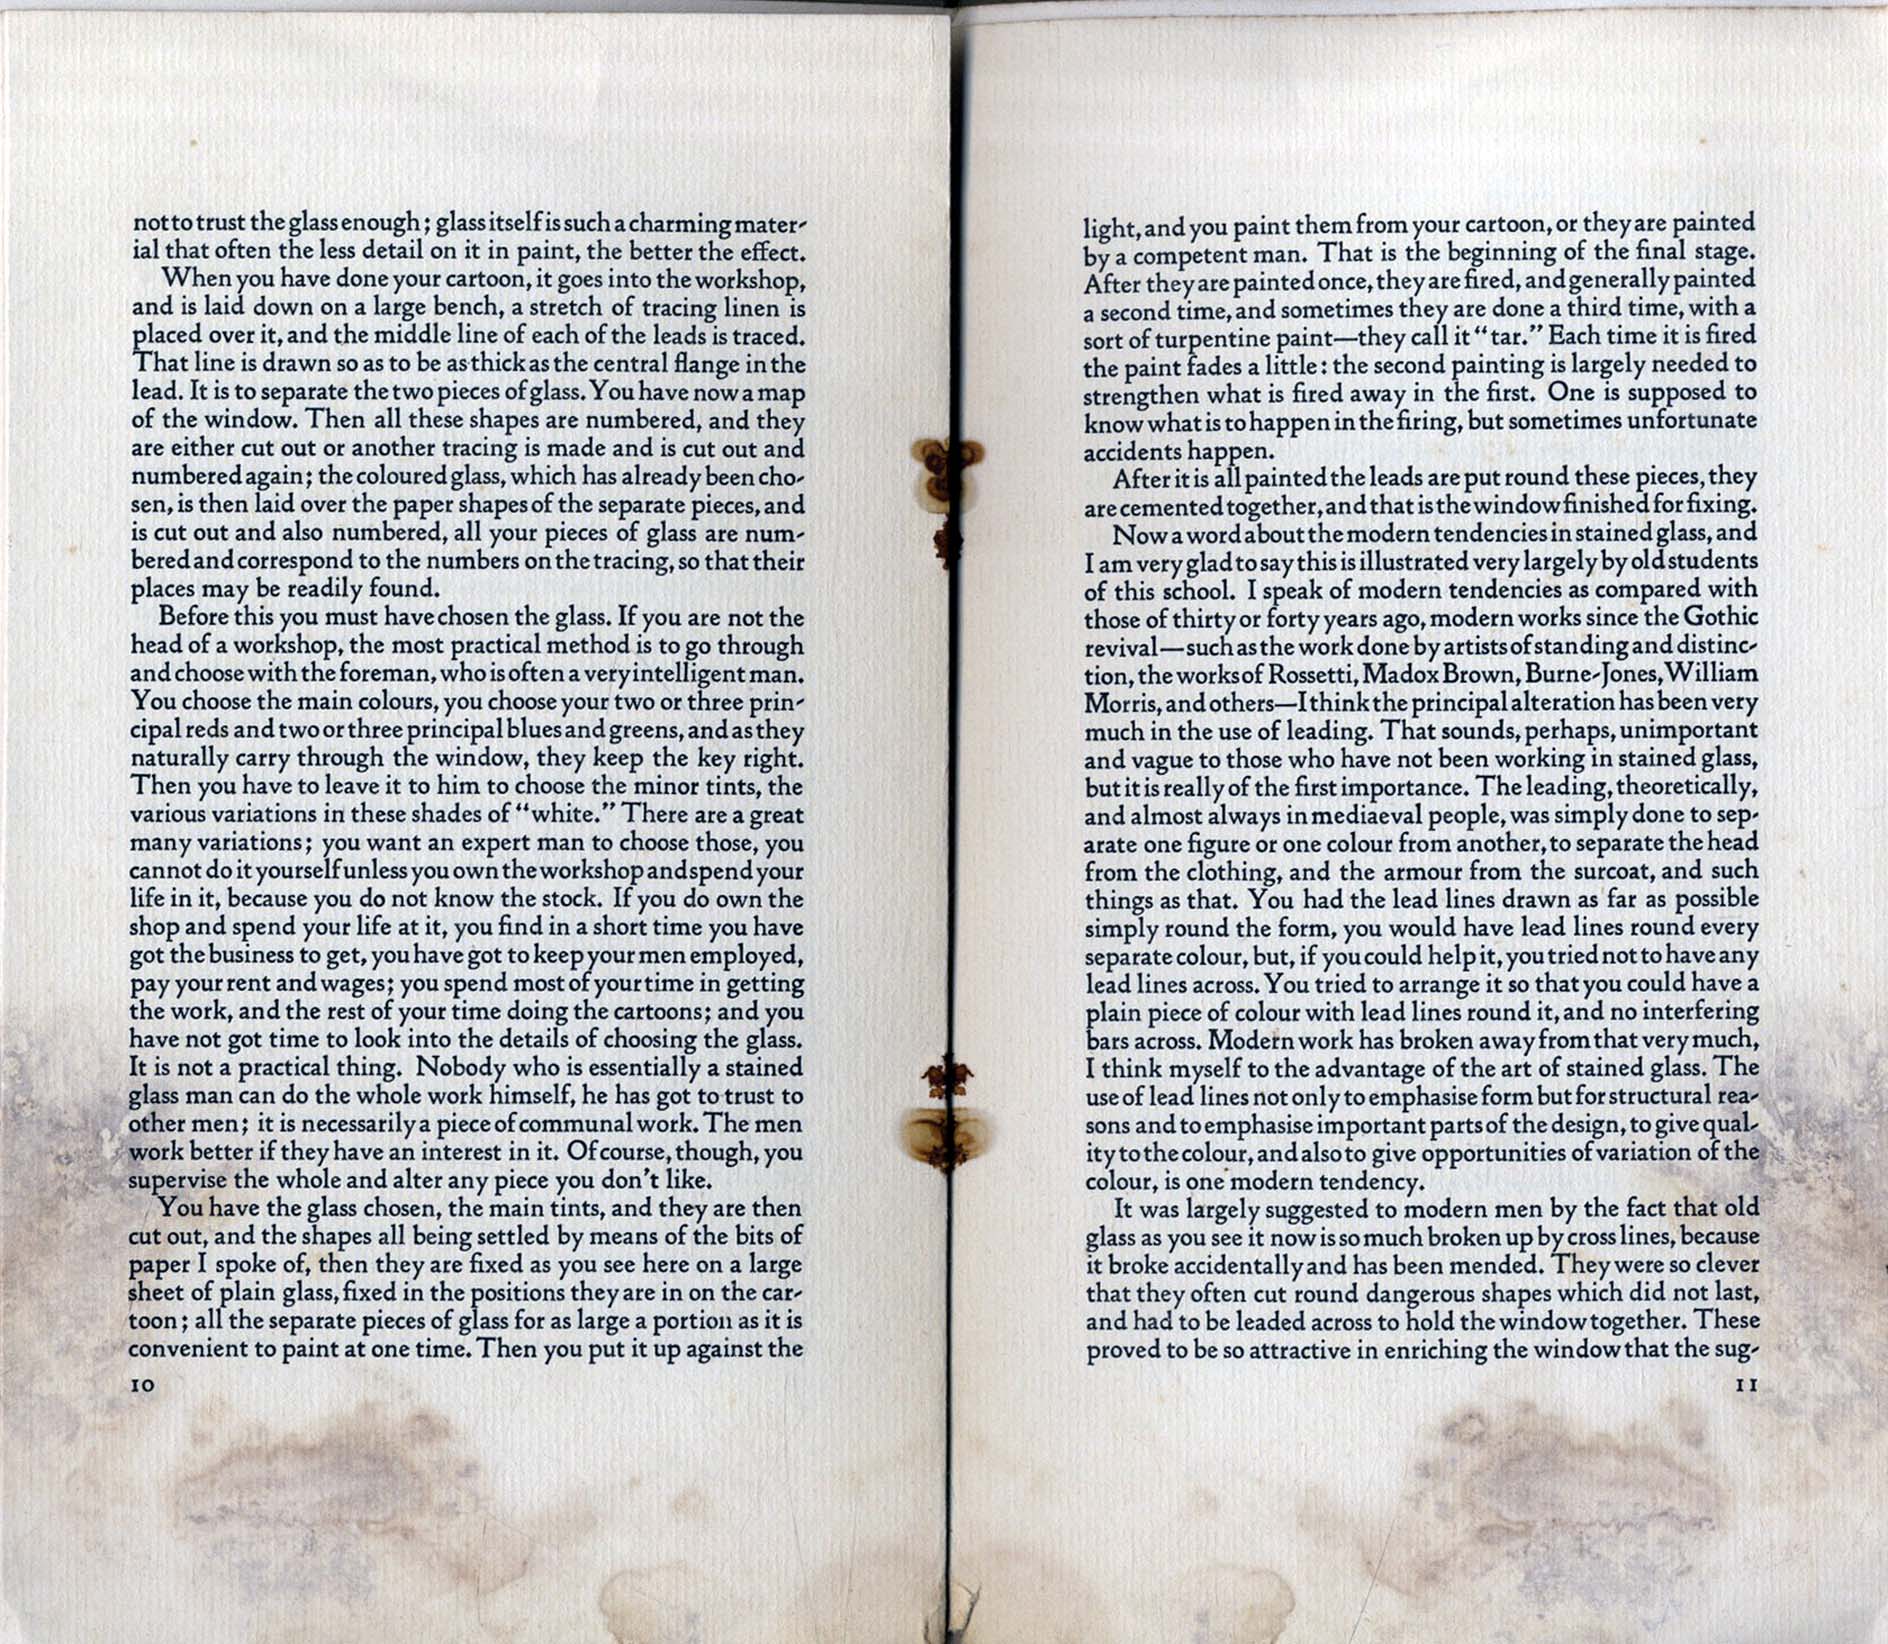 not to trust the glass enough; glass itself is such a charming mater-
ial that often the less detail on it in paint, the better the effect.
When you have done your cartoon, it goes into the workshop,
and is laid down on a large bench, a stretch of tracing linen is
placed over it, and the middle line of each of the leads is traced.
That line is drawn so as to be as thick as the central flange in the
lead. It is to separate the two pieces of glass. You have now a map
of the window. Then all these shapes are numbered, and they
are either cut out or another tracing is made and is cut out and
numbered again; the coloured glass, which has already been cho-
sen, is then laid over the paper shapes of the separate pieces, and
is cut out and also numbered, all your pieces of glass are num-
bered and correspond to the numbers on the tracing, so that their
places may be readily found.
Before this you must have chosen the glass. If you are not the
head of a workshop, the most practical method is to go through
and choose with the foreman, who is often a very intelligent man.
You choose the main colours, you choose your two or three prin-
cipal reds and two or three principal blues and greens, and as they
naturally carry through the window, they keep the key right.
Then you have to leave it to him to choose the minor tints, the
various variations in these shades of "white." There are a great
many variations; you want an expert man to choose those, you
cannot do it yourself unless you own the workshop and spend your
life in it, because you do not know the stock. If you do own the
shop and spend your life at it, you find in a short time you have
got the business to get, you have got to keep your men employed,
pay your rent and wages; you spend most of your time in getting
the work, and the rest of your time doing the cartoons; and you
have not got time to look into the details of choosing the glass.
It is not a practical thing. Nobody who is essentially a stained
glass man can do the whole work himself, he has got to trust to
other men; it is necessarily a piece of communal work. The men
work better if they have an interest in it. Of course, though, you
supervise the whole and alter any piece you don't like.
You have the glass chosen, the main tints, and they are then
cut out, and the shapes all being settled by means of the bits of
paper I spoke of, then they are fixed as you see here on a large
sheet of plain glass, fixed in the positions they are in on the car-
toon; all the separate pieces of glass for as large a portion as it is
convenient to paint at one time. Then you put it up against the
10
light, and you paint them from your cartoon, or they are painted
by a competent man. That is the beginning of the final stage.
After they are painted once, they are fired, and generally painted
a second time, and sometimes they are done a third time, with a
sort of turpentine paint—they call it "tar." Each time it is fired
the paint fades a little: the second painting is largely needed to
strengthen what is fired away in the first. One is supposed to
know what is to happen in the firing, but sometimes unfortunate
accidents happen.
After it is all painted the leads are put round these pieces, they
are cemented together, and that is the window finished for fixing.
Now a word about the modern tendencies in stained glass, and
I am very glad to say this is illustrated very largely by old students
of this school. I speak of modern tendencies as compared with
those of thirty or forty years ago, modern works since the Gothic
revival—such as the work done by artists of standing and distinc-
tion, the works of Rossetti, Madox Brown, Burne-Jones, William
Morris, and others—I think the principal alteration has been very
much in the use of leading. That sounds, perhaps, unimportant
and vague to those who have not been working in stained glass,
but it is really of the first importance. The leading, theoretically,
and almost always in mediaeval people, was simply done to sep-
arate one figure or one colour from another, to separate the head
from the clothing, and the armour from the surcoat, and such
things as that. You had the lead lines drawn as far as possible
simply round the form, you would have lead lines round every
separate colour, but, if you could help it, you tried not to have any
lead lines across. You tried to arrange it so that you could have a
plain piece of colour with lead lines round it, and no interfering
bars across. Modern work has broken away from that very much,
I think myself to the advantage of the art of stained glass. The
use of lead lines not only to emphasise form but for structural rea-
sons and to emphasise important parts of the design, to give qual-
ity to the colour, and also to give opportunities of variation of the
colour, is one modern tendency.
It was largely suggested to modern men by the fact that old
glass as you see it now is so much broken up by cross lines, because
it broke accidentally and has been mended. They were so clever
that they often cut round dangerous shapes which did not last,
and had to be leaded across to hold the window together. These
proved to be so attractive in enriching the window that the sug-
11